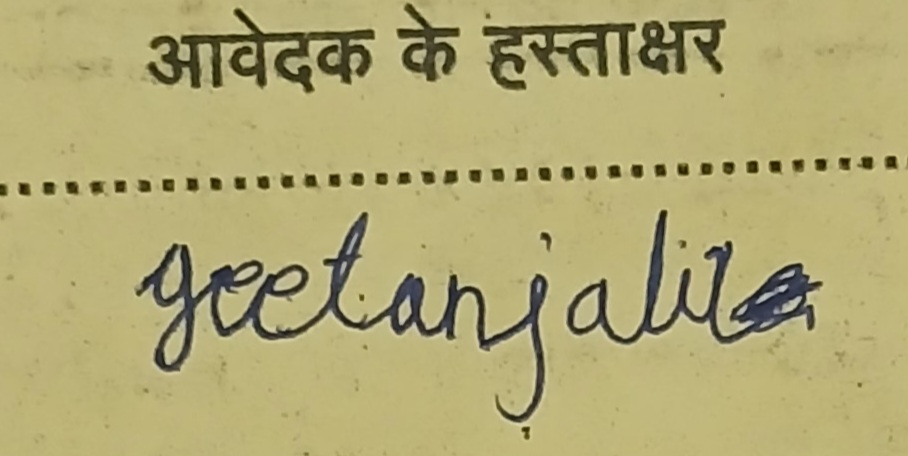 आवेदक के हस्ताक्षर
geetanjali